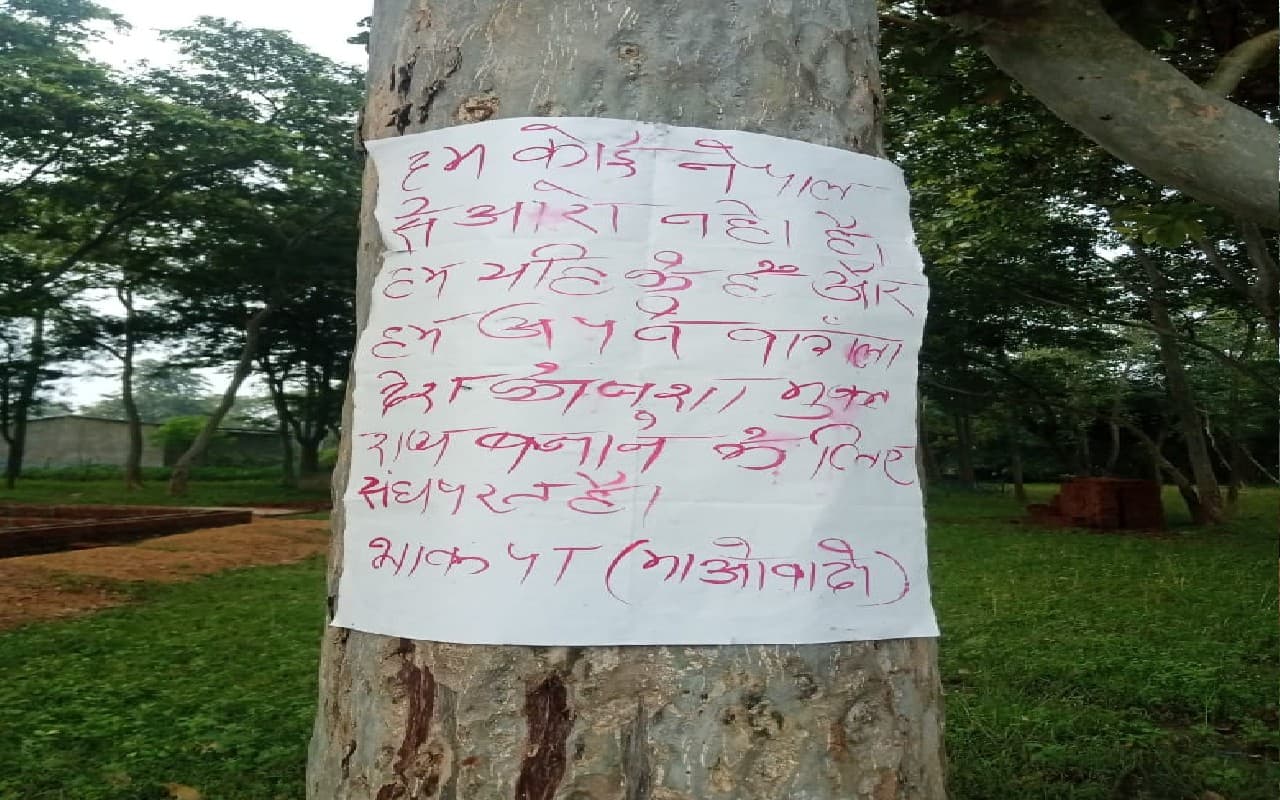 हम कोई नेपाल
से आरो नहे। है।
हम यहि के है और
हम अपने वाग्ला
देश को नशा मुक्त
राय बनाने के लिए
संघपरत है।
भाकपा (माओवादी)